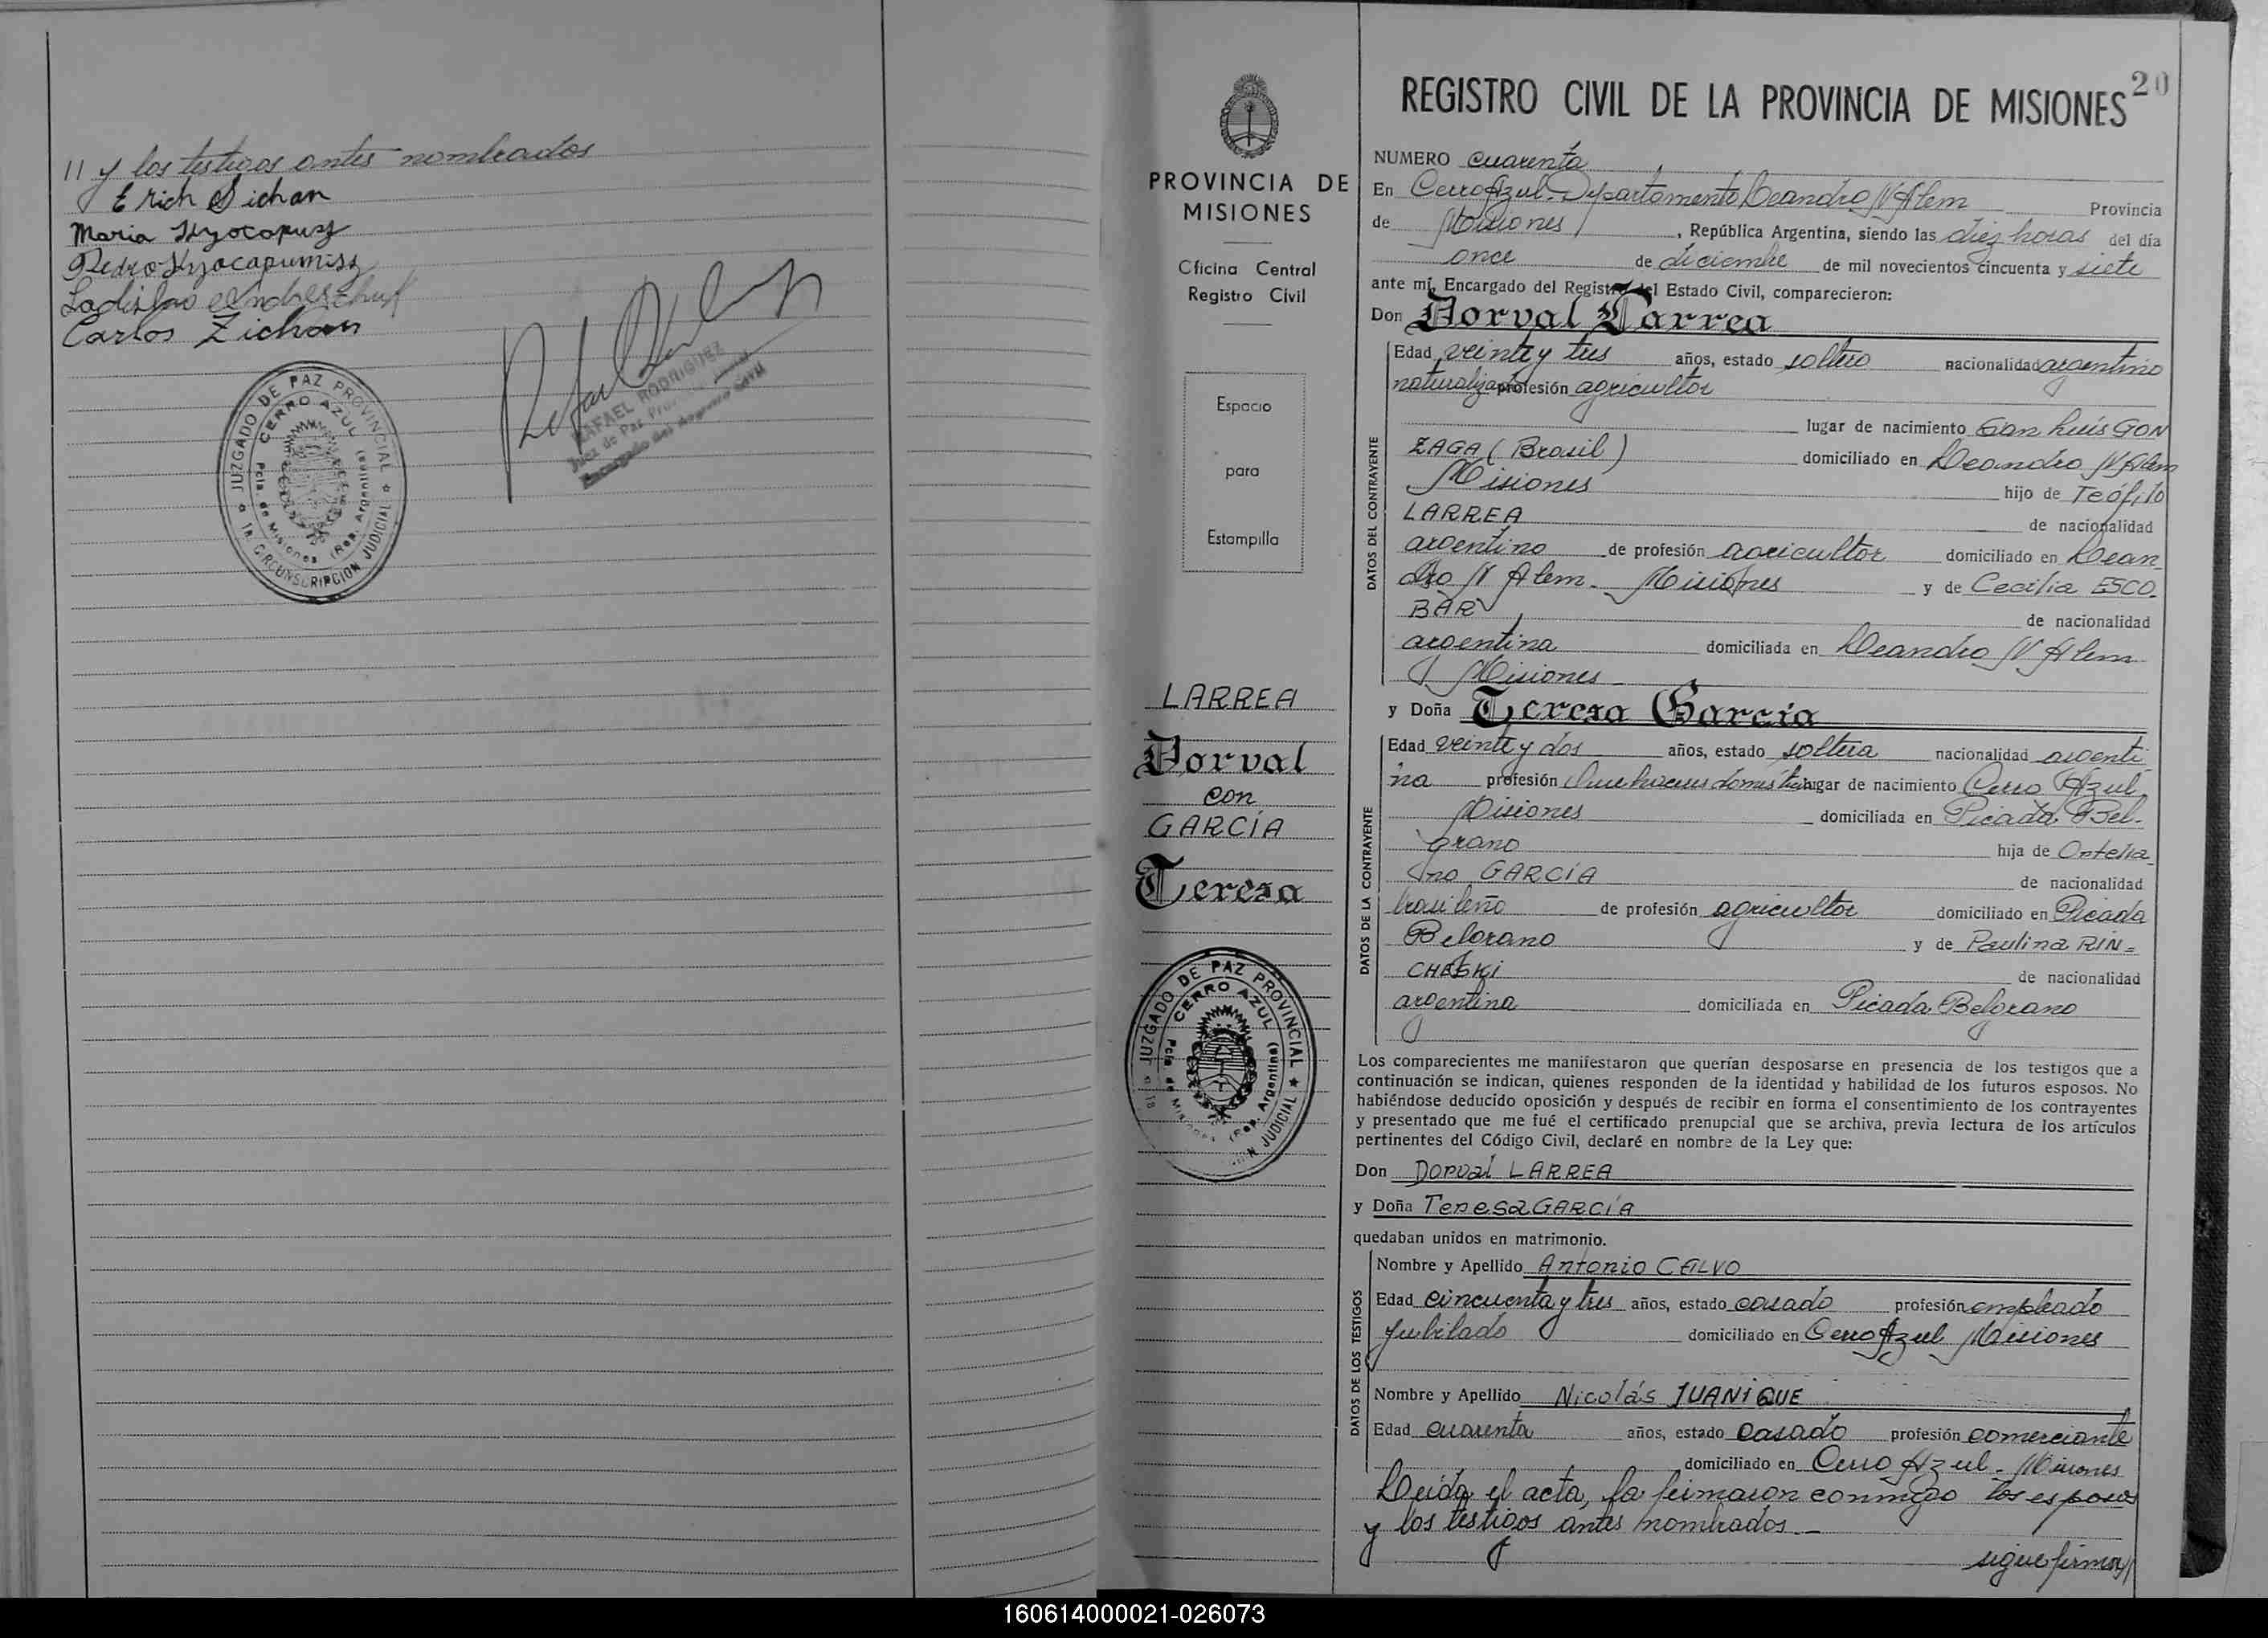 // y los testigos antes nombrados
Erich Sichan
Maria
Pedro
Ladislao
Carlos Zichan
RAFAEL RODRIGUEZ
Juez de Paz Provincial
Encargado del Registro Civil
JUZGADO DE PAZ PROVINCIAL
CERRO AZUL
Pcia. de Misiones (Rep. Argentina)
1a. CIRCUNSCRIPCION JUDICIAL
PROVINCIA DE
MISIONES
Oficina Central
Registro Civil
Espacio
para
Estampilla
LARREA
Dorval
con
GARCÍA
Teresa
JUZGADO DE PAZ PROVINCIAL
CERRO AZUL
Pcia. de Misiones (Rep. Argentina)
JUDICIAL
20
REGISTRO CIVIL DE LA PROVINCIA DE MISIONES
NUMERO cuarenta
En Cerro Azul-Departamento Leandro N Alem Provincia
de Misiones, República Argentina, siendo las diez horas del día
once de diciembre de mil novecientos cincuenta y siete
ante mi, Encargado del Registro del Estado Civil, comparecieron:
Don Dorval Larrea
DATOS DEL CONTRAYENTE
Edad veinte y tres años, estado soltero nacionalidad argentino
naturalizado profesión agricultor
lugar de nacimiento San Luis GON
ZAGA (Brasil) domiciliado en Leandro N Alem
Misiones hijo de Teófilo
LARREA de nacionalidad
argentino de profesión agricultor domiciliado en Lean
dro N Alem - Misiones y de Cecilia ESCO-
BAR de nacionalidad
argentina domiciliada en Leandro N Alem
Misiones
y Doña Teresa García
DATOS DE LA CONTRAYENTE
Edad veinte y dos años, estado soltera nacionalidad argenti
na profesión Quehaceres domésticos lugar de nacimiento Cerro Azul
Misiones domiciliada en Picada Bel-
grano hija de
no GARCÍA de nacionalidad
brasileño de profesión agricultor domiciliado en Picada
Belgrano y de Paulina RIN=
de nacionalidad
argentina domiciliada en Picada Belgrano
Los comparecientes me manifestaron que querían desposarse en presencia de los testigos que a
continuación se indican, quienes responden de la identidad y habilidad de los futuros esposos. No
habiéndose deducido oposición y después de recibir en forma el consentimiento de los contrayentes
y presentado que me fué el certificado prenupcial que se archiva, previa lectura de los artículos
pertinentes del Código Civil, declaré en nombre de la Ley que:
Don Dorval LARREA
y Doña Teresa GARCÍA
quedaban unidos en matrimonio.
DATOS DE LOS TESTIGOS
Nombre y Apellido Antonio CALVO
Edad cincuenta y tres años, estado casado profesión empleado
jubilado domiciliado en Cerro Azul Misiones
Nombre y Apellido Nicolás JUANIQUE
Edad cuarenta años, estado casado profesión comerciante
domiciliado en Cerro Azul - Misiones
Leida el acta, la firmaron conmigo los esposos
y los testigos antes nombrados.-
sigue firmas//
160614000021-026073